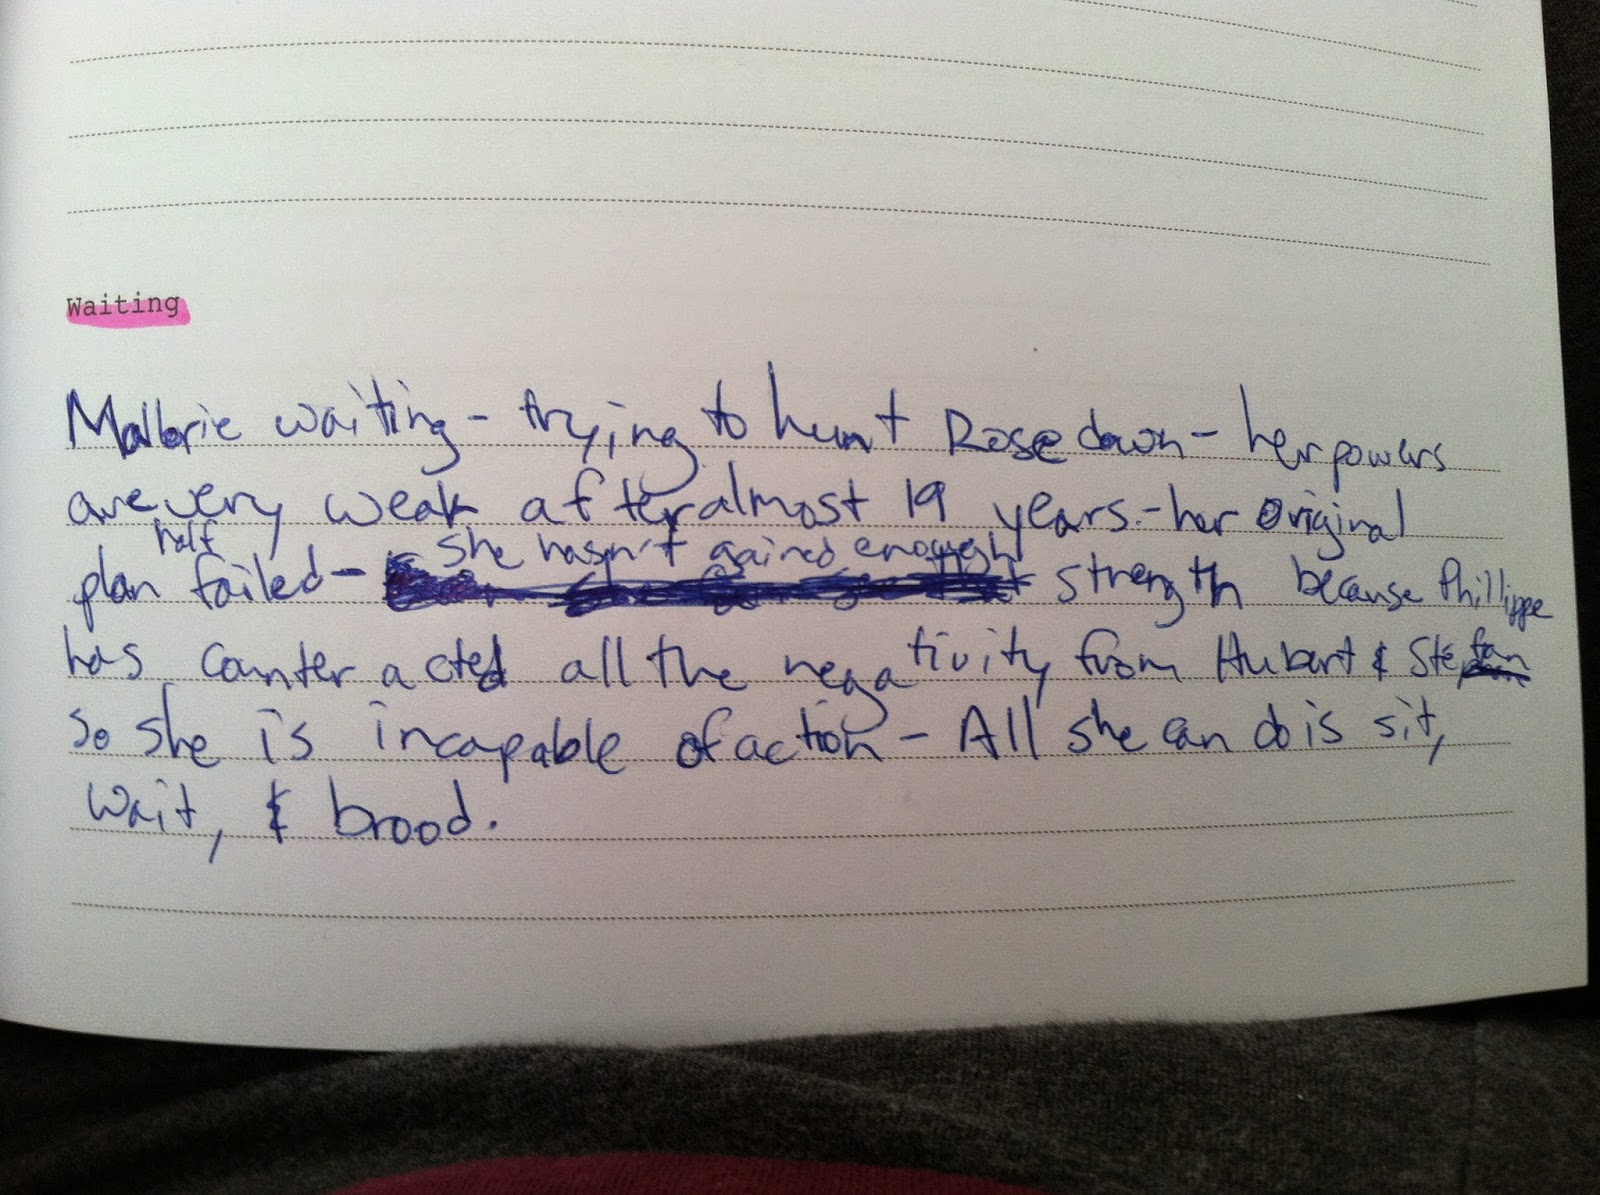 Waiting
Mallorie waiting - trying to hunt Rose down - her powers
are very weak after almost 19 years. - her original
plan half failed - she hasn't gained enough strength because Phillippe
has counteracted all the negativity from Hubert & Stefan
so she is incapable of action - All she can do is sit,
wait, & brood.